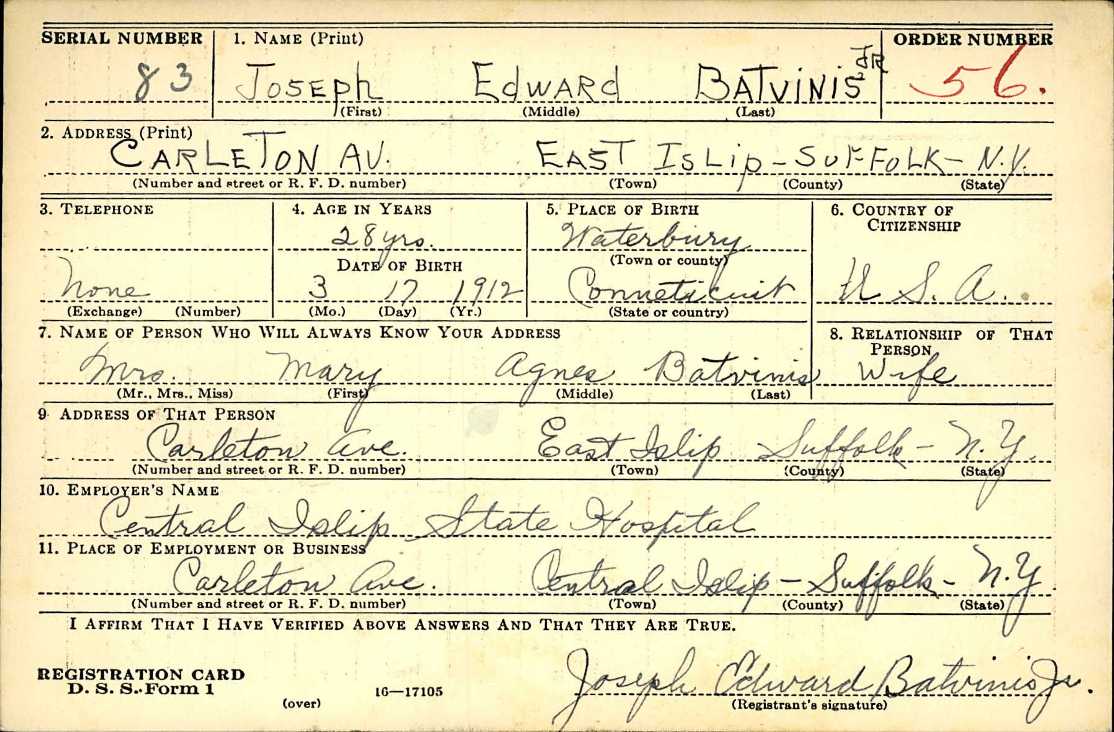 SERIAL NUMBER 1. NAME (Print) ORDER NUMBER
83 JOSEPH EDWARD BATVINIS JR 56.
(First) (Middle) (Last)
2. ADDRESS (Print)
CARLETON AV. EAST ISLIP - SUFFOLK - N.Y.
(Number and street or R. F. D. number) (Town) (County) (State)
3. TELEPHONE 4. AGE IN YEARS 5. PLACE OF BIRTH 6. COUNTRY OF CITIZENSHIP
28 yrs. Waterbury
DATE OF BIRTH (Town or county)
None 3 17 1912 Conneticuit U S. A.
(Exchange) (Number) (Mo.) (Day) (Yr.) (State or country)
7. NAME OF PERSON WHO WILL ALWAYS KNOW YOUR ADDRESS 8. RELATIONSHIP OF THAT PERSON
Mrs. Mary Agnes Batvinis Wife
(Mr., Mrs., Miss) (First) (Middle) (Last)
9 ADDRESS OF THAT PERSON
Carleton Ave. East Islip Suffolk - N.Y.
(Number and street or R. F. D. number) (Town) (County) (State)
10. EMPLOYER'S NAME
Central Islip State Hospital
11. PLACE OF EMPLOYMENT OR BUSINESS
Carleton Ave. Central Islip - Suffolk - N.Y
(Number and street or R. F. D. number) (Town) (County) (State)
I AFFIRM THAT I HAVE VERIFIED ABOVE ANSWERS AND THAT THEY ARE TRUE.
REGISTRATION CARD
D. S. S. Form 1 16—17105 Joseph Edward Batvinis Jr.
(over) (Registrant's signature)